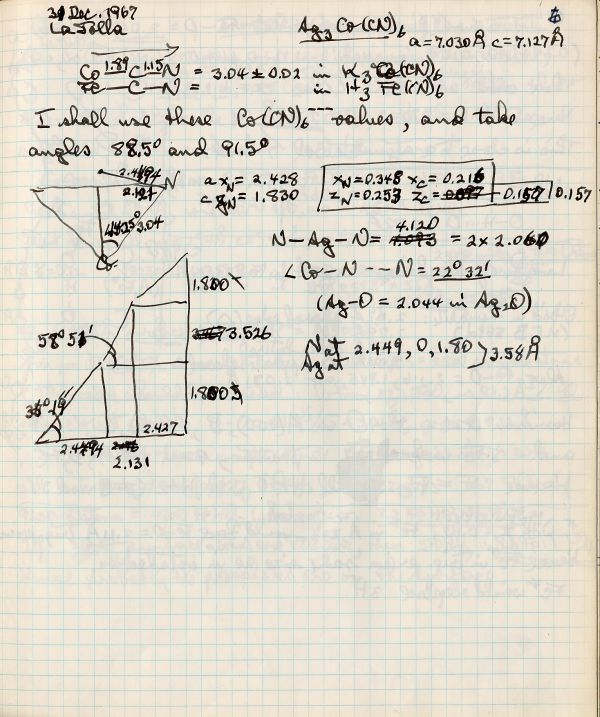 31 Dec. 1967
La Jolla
Ag3 Co(CN)6 a = 7.030 Å c = 7.127 Å
Co 1.89 C 1.15 N = 3.04 ± 0.02 in K3 Co(CN)6
Fe — C — N = in H3 Fe(CN)6
I shall use these Co(CN)6--- values, and take
angles 88.5° and 91.5°
N
3.04
Co
a xN = 2.428
c zN = 1.830
xN = 0.348 xC = 0.216
zN = 0.253 zC = 0.157 0.157
N—Ag—N = 4.120 = 2 × 2.060
∠ Co—N---N = 22° 32'
(Ag-O = 2.044 in Ag2O)
N at 2.449, 0, 1.80 } 3.58 Å
Ag at
3.526
2.427
2.131